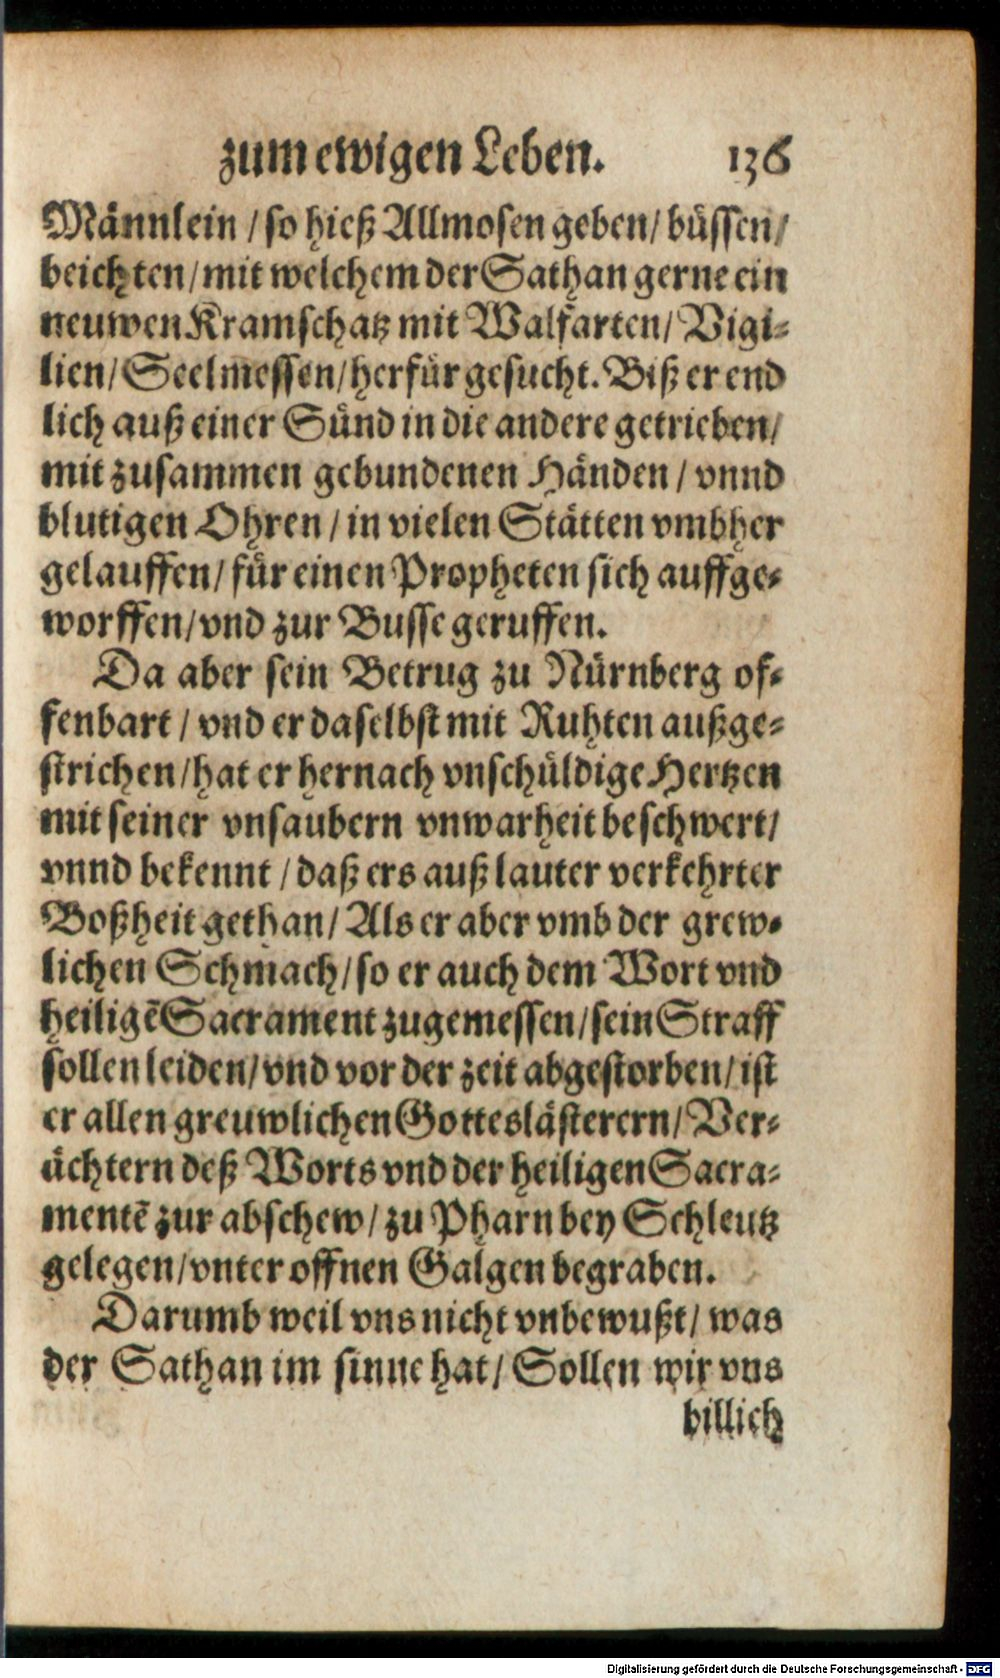 zum ewigen Leben. 136
Männlein / so hieß Allmosen geben / büssen /
beichten / mit welchem der Sathan gerne ein
neuwen Kramschatz mit Walfarten / Vigi-
lien / Seelmessen / herfür gesucht. Biß er end
lich auß einer Sünd in die andere getrieben /
mit zusammen gebundenen Händen / vnnd
blutigen Ohren / in vielen Stätten vmbher
gelauffen / für einen Propheten sich auffge-
worffen / vnd zur Busse geruffen.
Da aber sein Betrug zu Nürnberg of-
fenbart / vnd er daselbst mit Ruhten außge-
strichen / hat er hernach vnschüldige Hertzen
mit seiner vnsaubern vnwarheit beschwert /
vnnd bekennt / daß ers auß lauter verkehrter
Boßheit gethan / Als er aber vmb der grew-
lichen Schmach / so er auch dem Wort vnd
heiligẽ Sacrament zugemessen / sein Straff
sollen leiden / vnd vor der zeit abgestorben / ist
er allen greuwlichen Gotteslästerern / Ver-
ächtern deß Worts vnd der heiligen Sacra-
mentẽ zur abschew / zu Pharn bey Schleutz
gelegen / vnter offnen Galgen begraben.
Darumb weil vns nicht vnbewußt / was
der Sathan im sinne hat / Sollen wir vns
billich
Digitalisierung gefördert durch die Deutsche Forschungsgemeinschaft - DFG